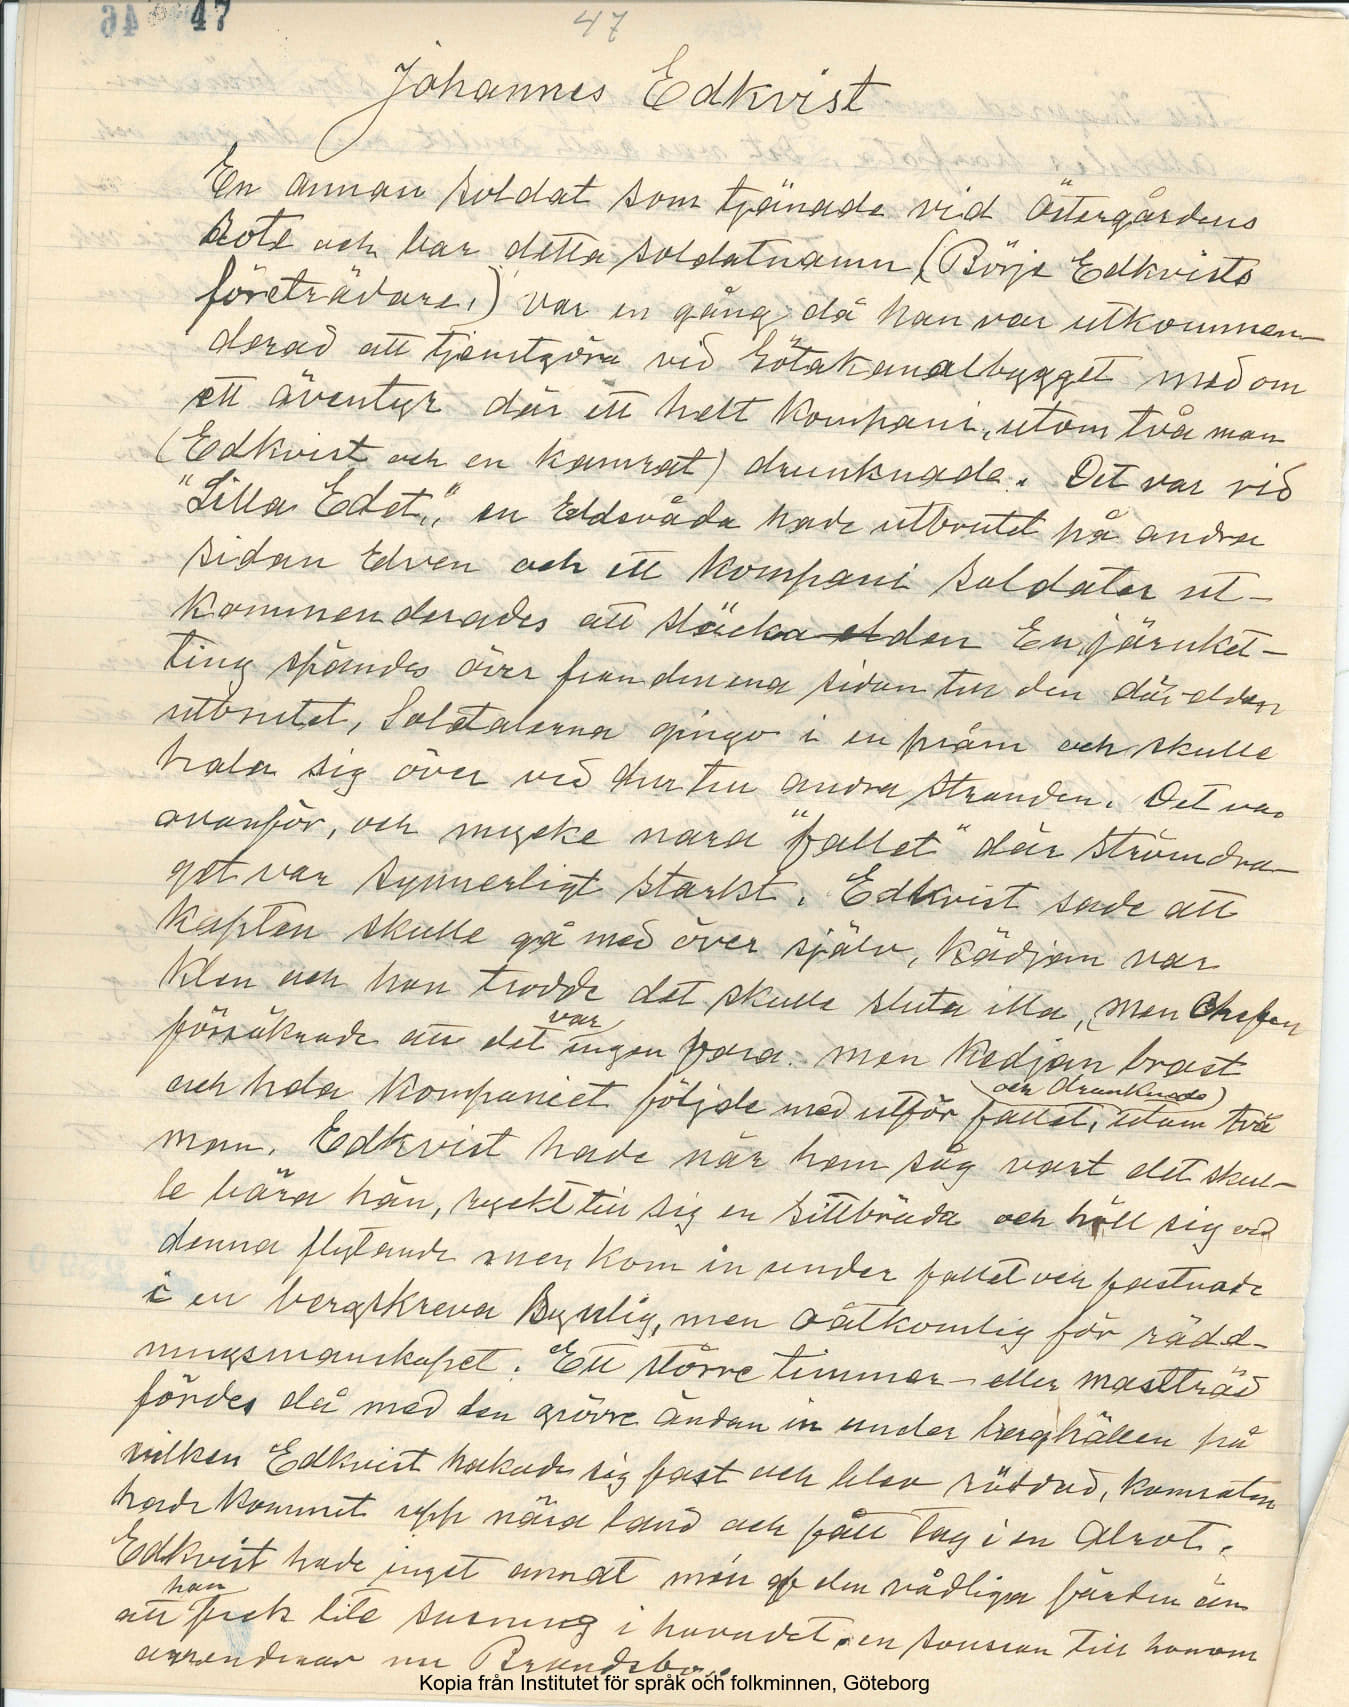 46 47 47
Johannes Edkvist
En annan soldat som tjänade vid Östergårdens
Rote och bar detta soldatnamn (Börje Edkvists
företrädare,) var en gång då han var utkommen-
derad att tjenstgöra vid Götakanalbygget med om
ett äventyr där ett helt kompani, utom två man
(Edkvist och en kamrat) drunknade. Det var vid
"Lilla Edet," en Eldsvåda hade utbrutit på andra
sidan Elven och ett kompani soldater ut-
kommenderades att släcka elden En järnket-
ting spändes över från den ena sidan till den där elden
utbrutet, Soldaterna gingo i en pråm och skulle
hala sig över ved den till andra stranden. Det var
ovanför, och mycke nära "fallet" där strömdra-
get var synnerligt starkt. Edkvist sade att
kapten skulle gå med över själv, kädjan var
klen och han trodde det skulle sluta illa, men Chefen
försäkrade att det var ingen fara. men kedjan brast
och hela kompaniet följde med utför fallet, (och drunknade) utom två
man. Edkvist hade när han såg vart det skul-
le bära hän, ryckt till sig en sittbräda och höll sig ved
denna flytande men kom in under fallet och fastnade
i en bergskreva synlig, men oåtkomlig för rädd-
ningsmanskapet. Ett större timmer- eller mastträd
fördes då med den grövre ändan in under berghällen på
vilken Edkvist hakade sig fast och blev räddad, kamraten
hade kommit upp nära land och fått tag i en alrot.
Edkvist hade inget annat mén af den vådliga färden än
att han fick lite susning i huvudet. en sonson till honom
arrenderar nu
Kopia från Institutet för språk och folkminnen, Göteborg